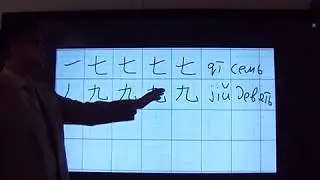 一 七 七 七 七 qī семь
丿 九 九 九 九 jiǔ девять